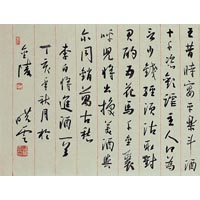 王昔時宴平樂斗酒
十千恣歡謔主人何為
言少錢徑須沽取對
君酌五花馬千金裘
呼兒將出換美酒與
尔同銷萬古愁
李白將進酒一首
丁亥年秋月於
金陵